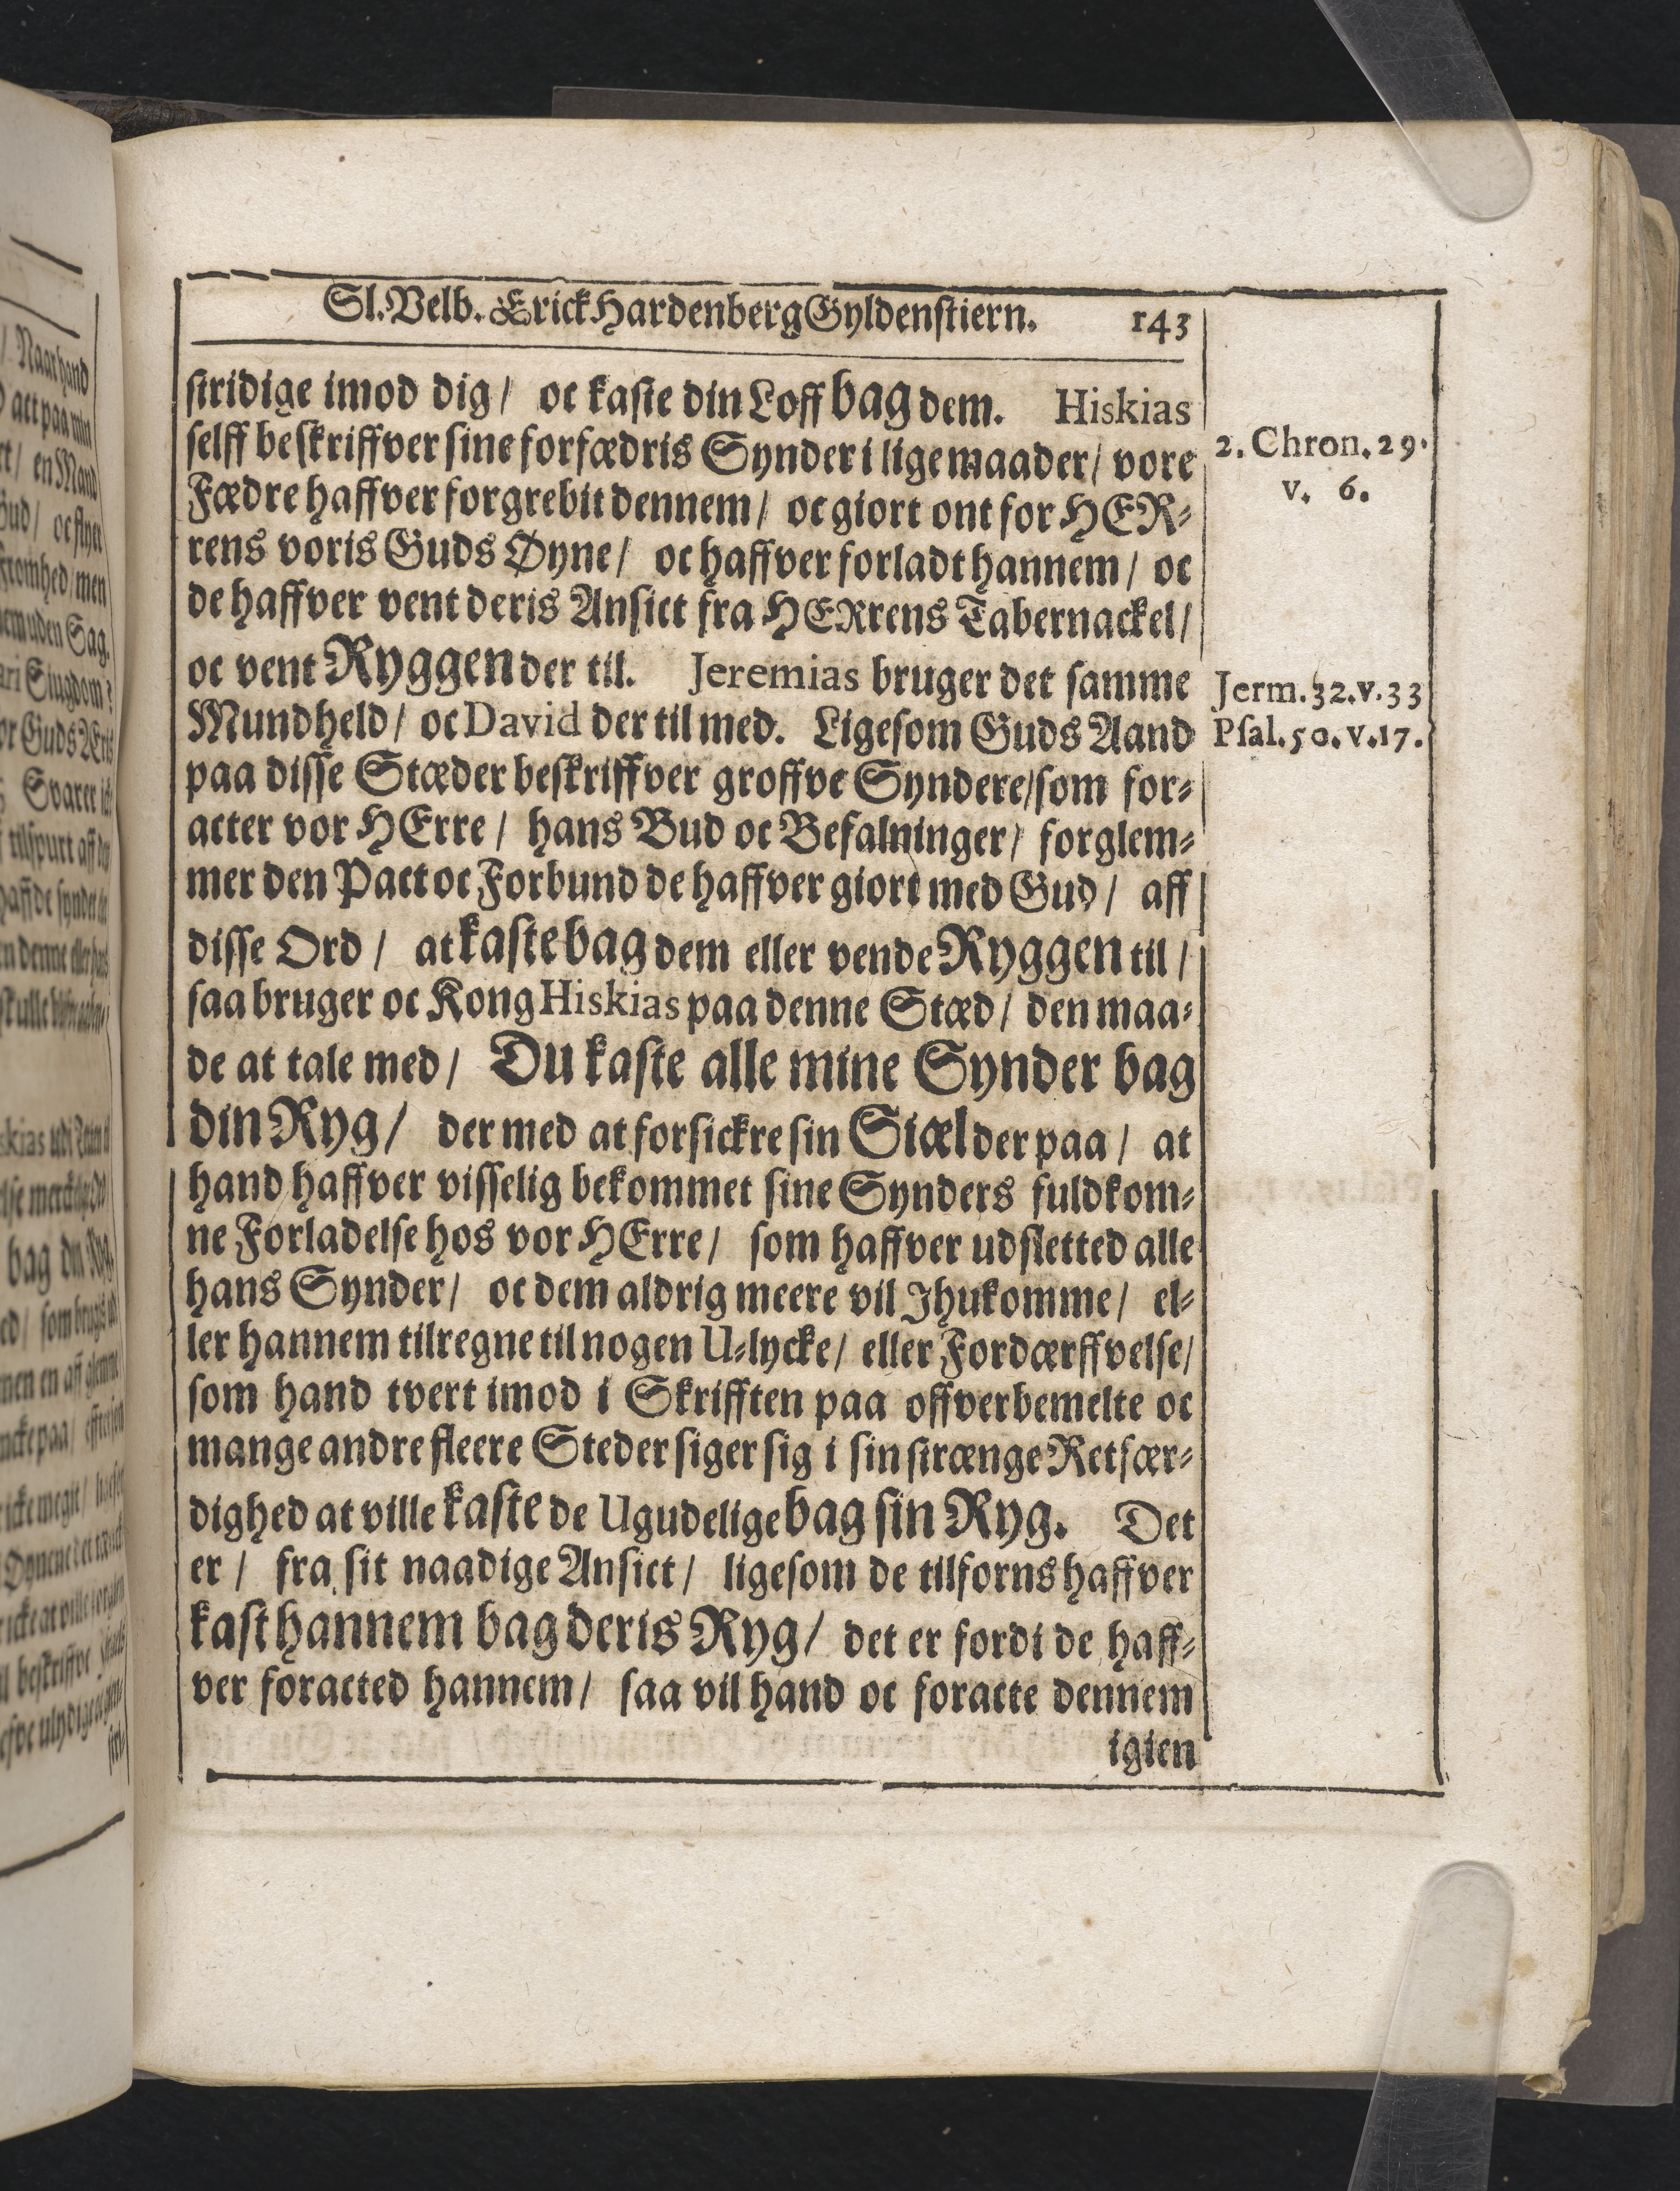 Sl. Velb. Erick Hardenberg Gyldenstiern. 143
stridige imod dig / oc kaste din Loff bag dem. Hiskias
selff beskriffver sine forfædris Synder i lige maader / vore
Fædre haffver forgrebit dennem / oc giort ont for HER-
rens voris Guds Øyne / oc haffver forladt hannem / oc
de haffver vent deris Ansict fra HERrens Tabernackel /
oc vent Ryggen der til. Jeremias bruger det samme
Mundheld / oc David der til med. Ligesom Guds Aand
paa disse Stæder beskriffver groffve Syndere / som for-
acter vor HErre / hans Bud oc Befalninger / forglem-
mer den Pact oc Forbund de haffver giort med Gud / aff
disse Ord / at kaste bag dem eller vende Ryggen til /
saa bruger oc Kong Hiskias paa denne Stæd / den maa-
de at tale med / Du kaste alle mine Synder bag
din Ryg / der med at forsickre sin Siæl der paa / at
hand haffver visselig bekommet sine Synders fuldkom-
ne Forladelse hos vor HErre / som haffver udsletted alle
hans Synder / oc dem aldrig meere vil Jhukomme / el-
ler hannem tilregne til nogen U-lycke / eller Fordærffvelse /
som hand tvert imod i Skrifften paa offverbemelte oc
mange andre fleere Steder siger sig i sin strænge Retfær-
dighed at ville kaste de Ugudelige bag sin Ryg. Det
er / fra sit naadige Ansict / ligesom de tilforns haffver
kast hannem bag deris Ryg / det er fordi de haff-
ver foracted hannem / saa vil hand oc foracte dennem
igien
2. Chron. 29.
v. 6.
Jerm. 32. v. 33
Psal. 50. v. 17.